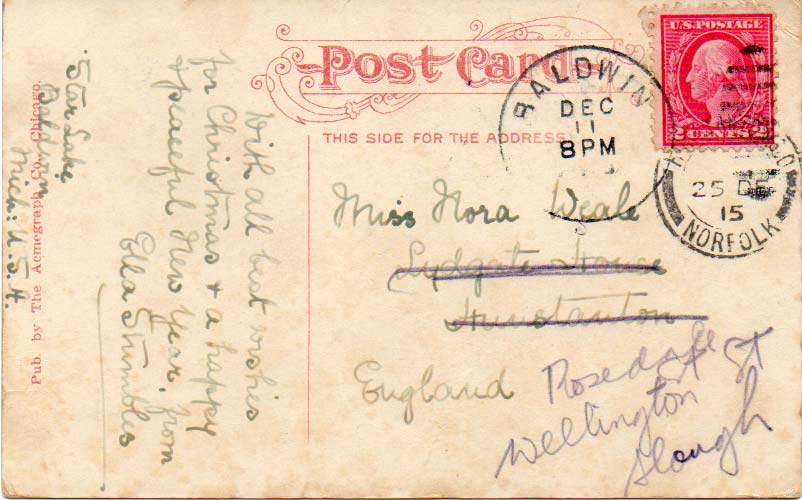 Post Card
THIS SIDE FOR THE ADDRESS
U.S. POSTAGE
2 CENTS 2
BALDWIN
DEC
11
8 PM
25 DE
15
NORFOLK
Miss Nora Weale
Lydgate House
Hunstanton
England
Rosedale
Wellington St
Slough
Star Lake,
Baldwin
Mich: U.S.A.
With all best wishes
for Christmas & a happy
& peaceful New Year, from
Ella Stumbles
Pub. by The Acmegraph Co., Chicago.